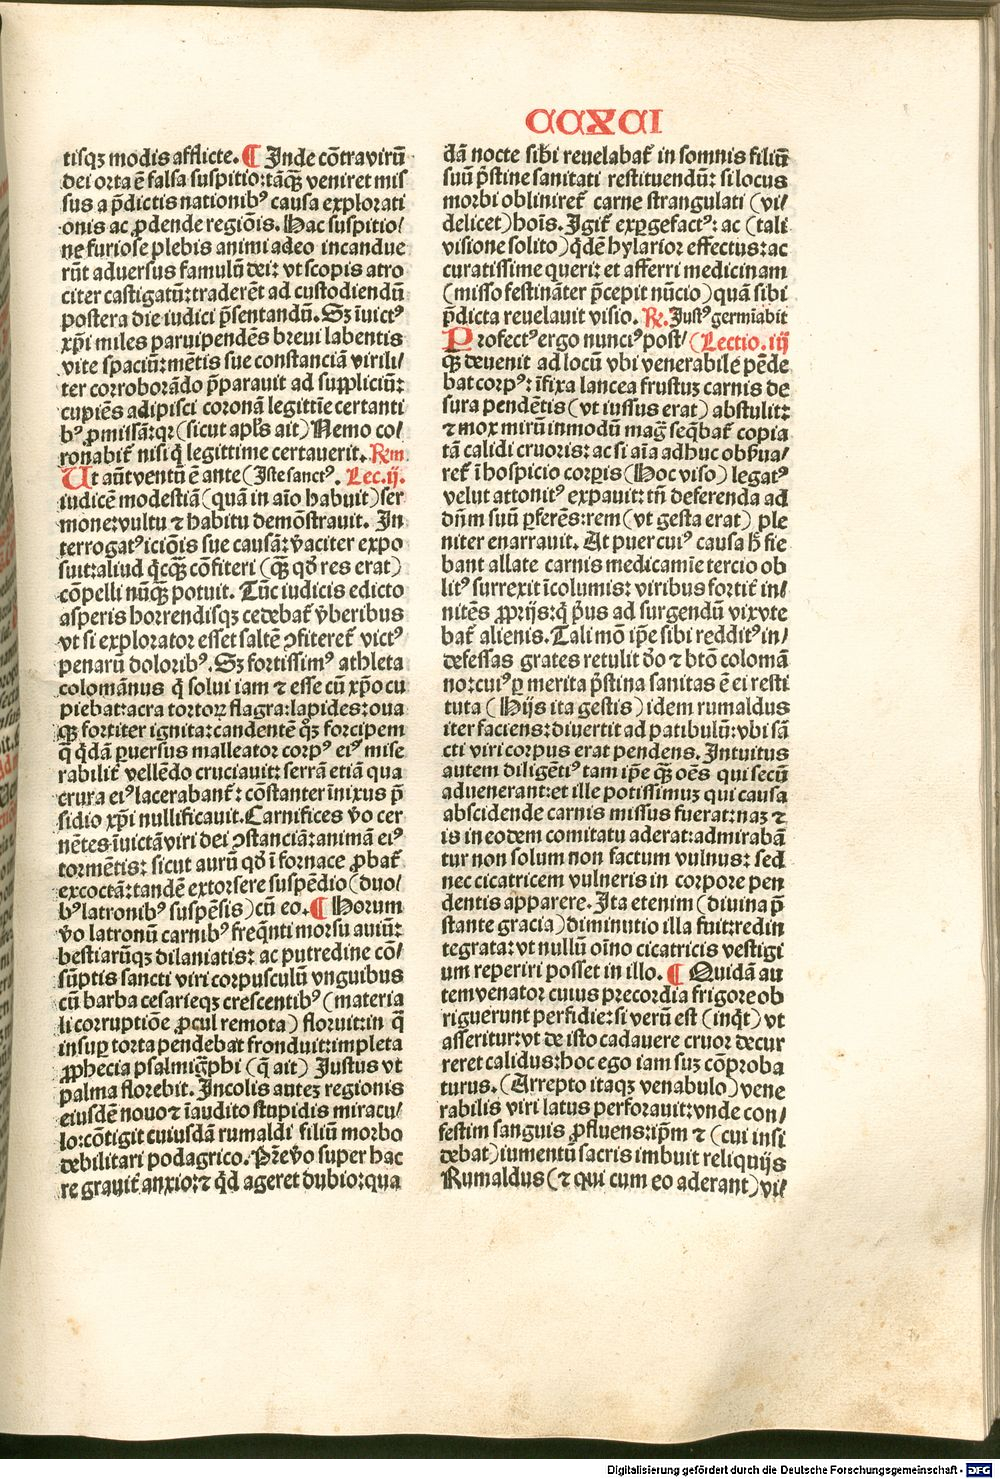 CCXCI
tisqꝫ modis afflicte. ¶ Inde cōtra virū
dei orta ē falsa suspitio: tāqꝫ̄ veniret mis
sus a p̄dictis nationibꝰ causa explorati
onis ac ꝓdende regiōis. Hac suspitio/
ne furiose plebis animi adeo incandue
rūt adversus famulū dei: vt scopis atro
citer castigatū: traderēt ad custodiendū
postera die iudici p̄sentandū. Sꝫ īuictꝰ
xp̄i miles paruipendēs breui labentis
vite spaciū: mētis sue constanciā virili/
ter corroborādo p̄parauit ad suppliciū:
cupiēs adipisci coronā legittīe certanti
bꝰ ꝓmissā: qꝛ (sicut apl's ait) Nemo co/
ronabit᷑ nisi q̇ legittime certauerit. Rm̄
Ut aūt ventū ē ante (Iste sanctꝰ. Lec. ij.
iudicē modestiā (quā in aīo habuit) ser
mone: vultu ⁊ habitu demōstrauit. In
terrogatꝰ iciōis sue causā: v̄aciter expo
suit: aliud q̇cqꝫ̄ cōfiteri (qꝫ̄ qd̄ res erat)
cōpelli nūqꝫ̄ potuit. Tūc iudicis edicto
asperis horrendisqꝫ cedebat᷑ v̄beribus
vt si explorator esset saltē ꝯfiteret᷑ victꝰ
penarū doloribꝰ. Sꝫ fortissimꝰ athleta
colomānus q̇ solui iam ⁊ esse cū xp̄o cu
piebat: acra tortoꝝ flagra: lapides: oua
qꝫ̄ fortiter ignita: candentē qꝫ forcipem
q̄ q̇dā ꝑuersus malleator corpꝰ eiꝰ mise
rabilit᷑ vellēdo cruciauit: serrā etiā qua
crura eiꝰ lacerabant᷑: cōstanter īnixus p̄
sidio xp̄i nullificauit. Carnifices v̄o cer
nētes īuictā viri dei ꝯstanciā: animā eiꝰ
tormētis: sicut aurū qd̄ ī fornace ꝓbat᷑
excoctā: tandē extorsere suspēdio (duo/
bꝰ latronibꝰ suspēsis) cū eo. ¶ Horum
v̄o latronū carnibꝰ freq̄nti morsu auiū:
bestiarūqꝫ dilaniatis: ac putredine cō/
sūptis sancti viri corpusculū vnguibus
cū barba cesarieqꝫ crescentibꝰ (materia
li corruptiōe ꝓcul remota) floruit: in q̄
insuꝑ torta pendebat fronduit: impleta
ꝓphecia psalmig̃phi (q̄ ait) Justus vt
palma florebit. Incolis autez regionis
eiusdē nouo ⁊ īaudito stupidis miracu/
lo: cōtigit cuiusdā rumaldi filiū morbo
debilitari podagrico. Pr̄e v̄o super hac
re grauit᷑ anxio: ⁊ qd̄ ageret dubio: qua
dā nocte sibi reuelabat᷑ in somnis filiū
suū p̄stine sanitati restituendū: si locus
morbi obliniret᷑ carne strangulati (vi/
delicet) hoīs. Igit᷑ exꝑgefactꝰ: ac (tali
visione solito) q̇dē hylarior effectus: ac
curatissime queri: et afferri medicinam
(misso festināter p̄cepit nūcio) quā sibi
p̄dicta reuelauit visio. R. Justꝰ germīabit
Profectꝰ ergo nunciꝰ post/ (Lectio. iij
qꝫ̄ deuenit ad locū vbi venerabile pēde
bat corpꝰ: īfixa lancea frustuꝫ carnis de
sura pendētis (vt iussus erat) abstulit:
⁊ mox mirū inmodū mag̃ seq̄bat᷑ copia
tā calidi cruoris: ac si aīa adhuc obẜua/
ret᷑ ī hospicio corꝑis (Hoc viso) legatꝰ
velut attonitꝰ expauit: tn̄ deferenda ad
dn̄m suū ꝑferēs: rem (vt gesta erat) ple
niter enarrauit. At puer cuiꝰ causa h̄ fie
bant allate carnis medicamīe tercio ob
litꝰ surrexit īcolumis: viribus fortit᷑ in/
nitēs ꝓprijs: q̇ p̄us ad surgendū vix vte
bat᷑ alienis. Tali mō ip̄e sibi redditꝰ in/
defessas grates retulit d̄o ⁊ bt̄o colomā
no: cuiꝰ ꝑ merita p̄stina sanitas ē ei resti
tuta (Hijs ita gestis) idem rumaldus
iter faciens: diuertit ad patibulū: vbi sā
cti viri corpus erat pendens. Intuitus
autem diligētiꝰ tam ip̄e qꝫ̄ oēs qui secū
aduenerant: et ille potissimuꝫ qui causa
abscidende carnis missus fuerat: naꝫ ⁊
is in eodem comitatu aderat: admirabā
tur non solum non factum vulnus: sed
nec cicatricem vulneris in corpore pen
dentis apparere. Ita etenim (diuina p̄
stante gracia) diminutio illa fuit: redin
tegrata: vt nullū oīno cicatricis vestigi
um reperiri posset in illo. ¶ Quidā au
tem venator cuius precordia frigore ob
riguerunt perfidie: si verū est (inq̇t) vt
asseritur: vt de isto cadauere cruor decur
reret calidus: hoc ego iam suꝫ cōproba
turus. (Arrepto itaqꝫ venabulo) vene
rabilis viri latus perforauit: vnde con/
festim sanguis ꝓfluens: ip̄m ⁊ (cui insi
debat) iumentū sacris imbuit reliquijs
Rumaldus (⁊ qui cum eo aderant) vi/
Digitalisierung gefördert durch die Deutsche Forschungsgemeinschaft - DFG